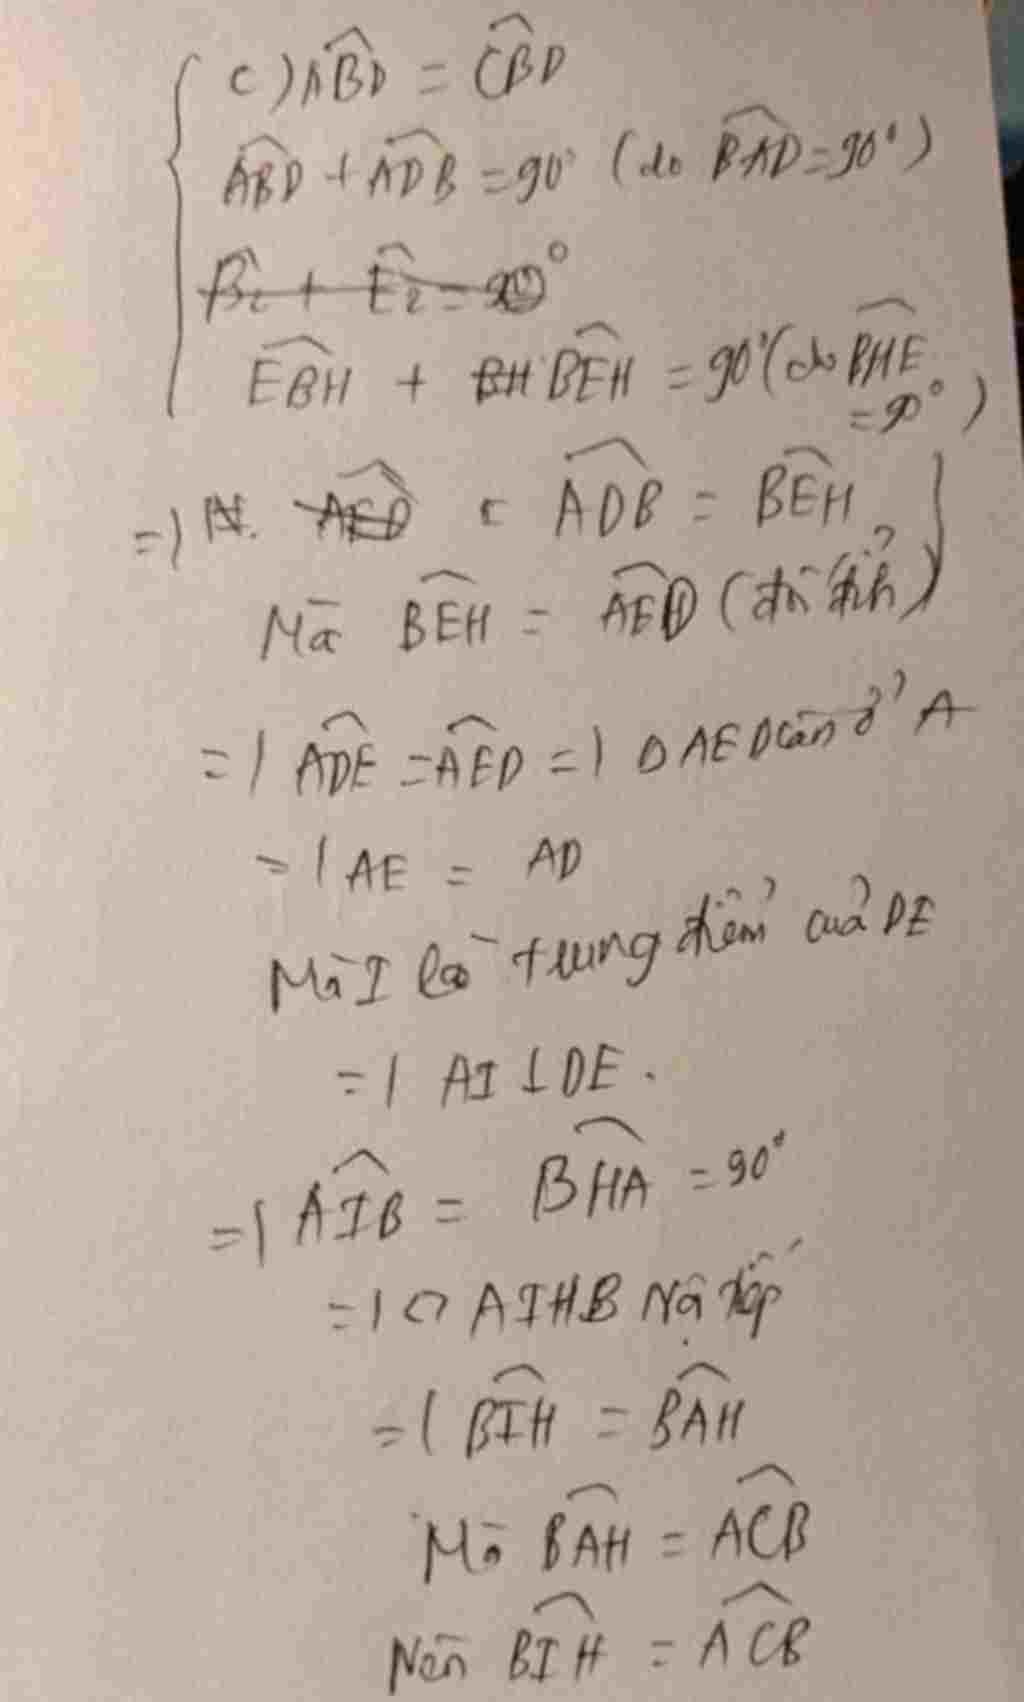 c) ABD = CBD
ABD + ADB = 90° (do BAD = 90°)
B₂ + E₂ = 90°
EBH + BH BEH = 90° (do BHE
= 90°)
=) AED = ADB = BEH
Mà BEH = AED (đối đỉnh)
=) ADE = AED =) Δ AED cân ở A
=) AE = AD
Mà I là trung điểm của DE
=) AI ⊥ DE.
=) AIB = BHA = 90°
=) ◇ AIHB Nội tiếp
=) BIH = BAH
Mà BAH = ACB
Nên BIH = ACB